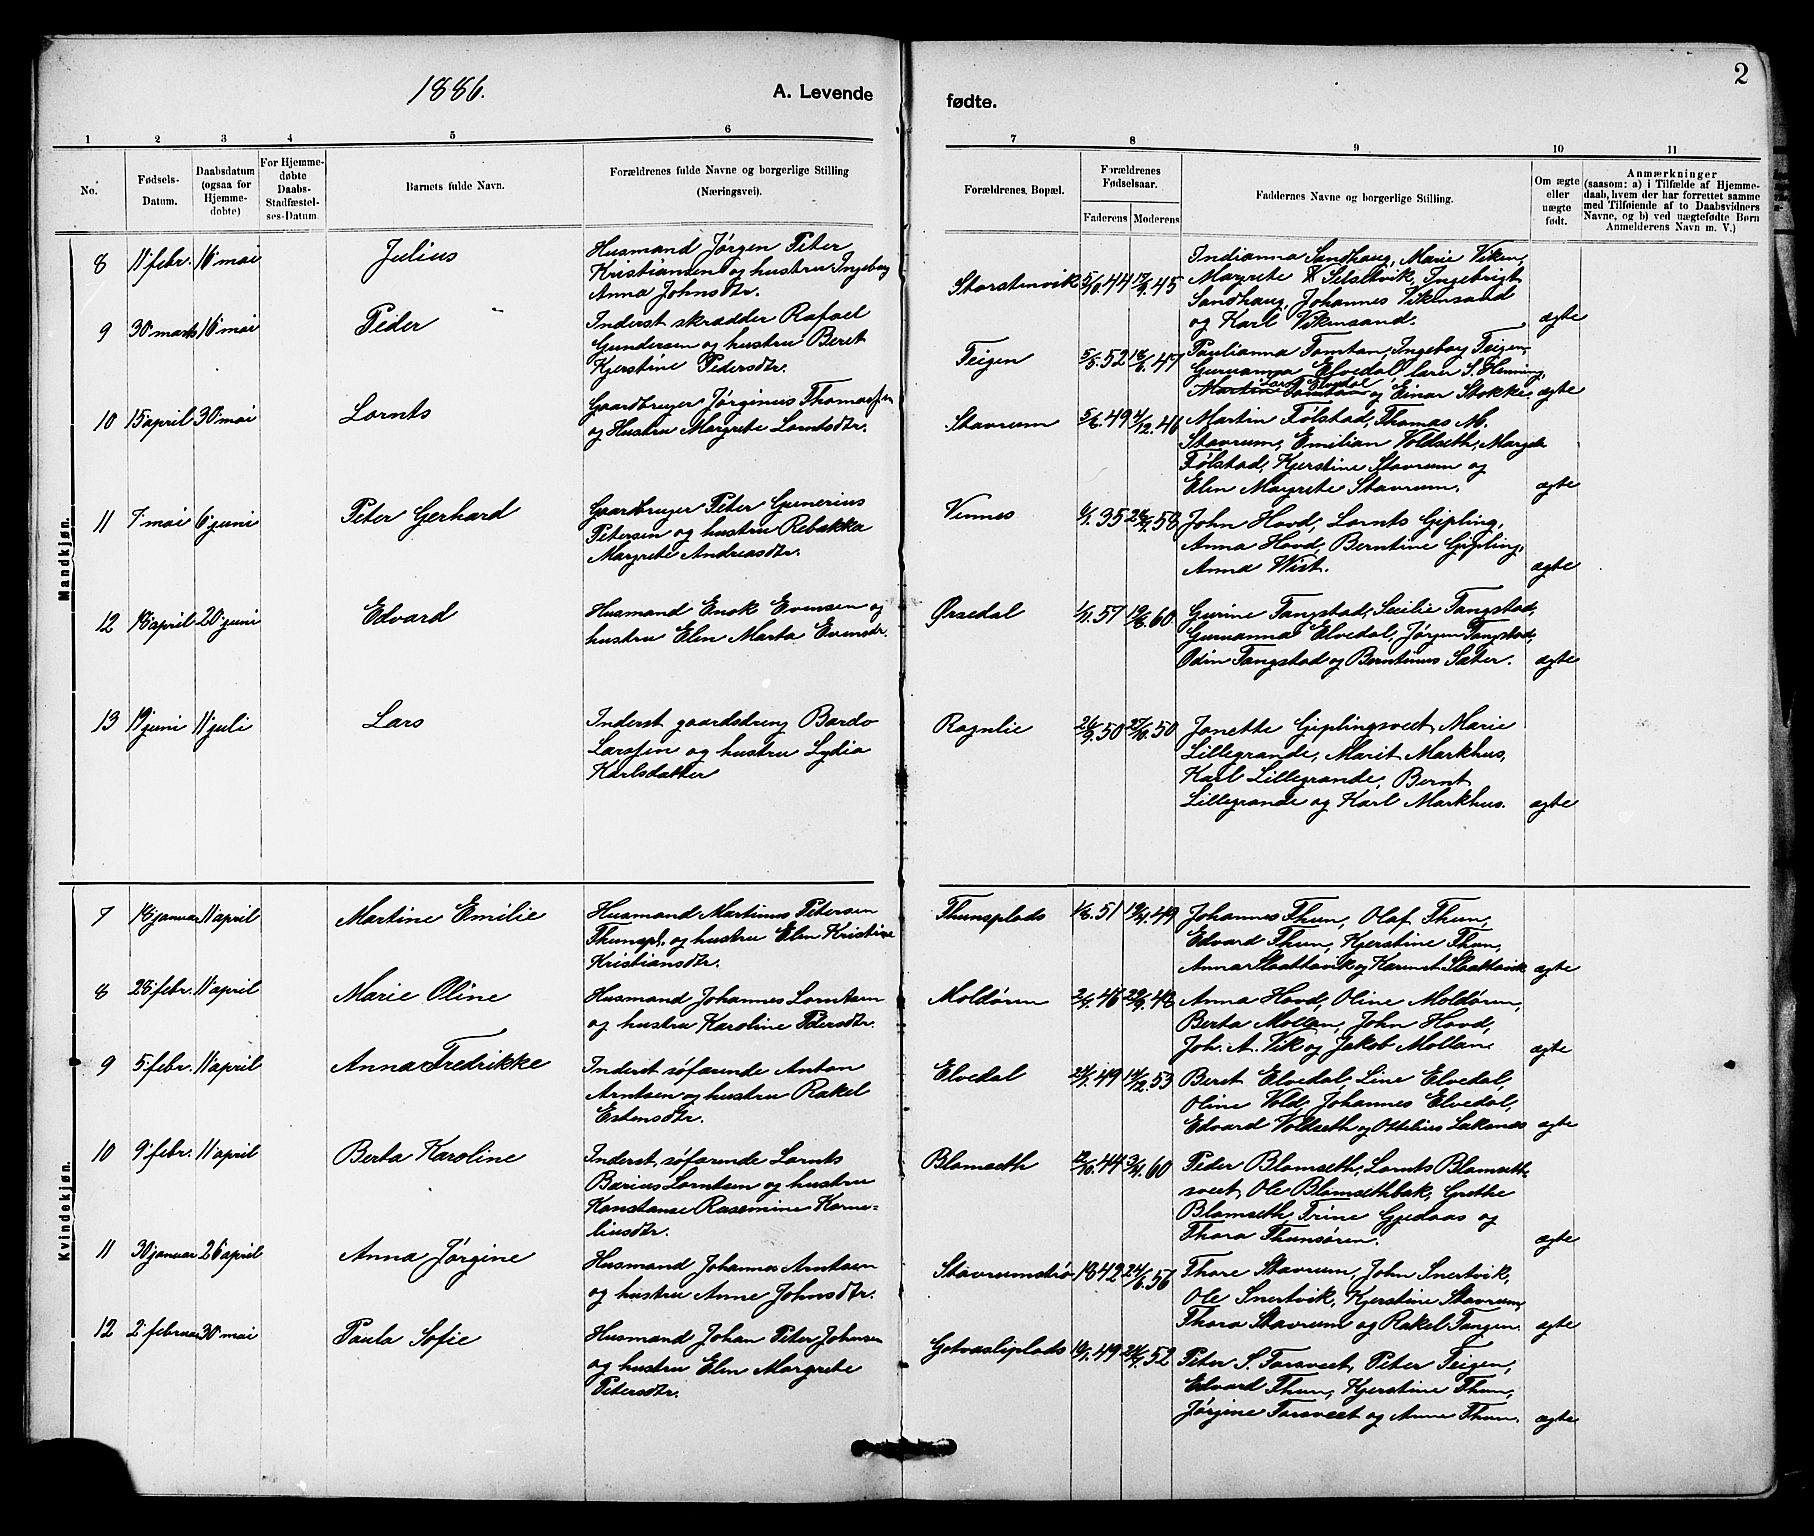 2
1886.
A. Levende
fødte.
1 2 3 4 5 6 7 8 9 10 11
No.
Fødsels-
Datum.
Daabsdatum
(ogsaa for
Hjemme-
døbte)
For Hjemme-
døbte
Daabs-
Stadfæstel-
ses-Datum.
Barnets fulde Navn.
Forældrenes fulde Navne og borgerlige Stilling
(Næringsvei).
Forældrenes. Bopæl.
Forældrenes
Fødselsaar.
Faderens Moderens
Faddernes Navne og borgerlige Stilling.
Om ægte
eller
uægte
født.
Anmærkninger
(saasom: a) i Tilfælde af Hjemme-
daab, hvem der har forrettet samme
med Tilføiende af to Daabsvidners
Navne, og b) ved uægtefødte Børn
Anmelderens Navn m. V.)
Mandkjøn.
8 11 febr. 16 mai Julius
Husmand Jørgen Peter
Kristiansen og hustru Ingeborg
Anna Johnsdtr.
Storstenvik 5/10 44 45
Indianna Sandhaug, Marie Viken,
Margrete Selsetvik, Ingebrigt
Sandhaug, Johannes Vikensand
og Karl Vikensand. ægte
9 30 marts 16 mai Peder
Inderst skrædder Rafael
Gundersen og hustru Beret
Kjerstine Pedersdtr.
Teigen 5/8 52 18/6 47
Paulianna Tomtan, Ingeborg Teigen,
Guruanna Elvedal, Lars S. Henning,
Lars Elvedal
Martin Tomtan og Einar Stokke. ægte
10 15 april 30 mai Lornts
Gaardbruger Jørginus Thomassen
og Hustru Margrete Lorntsdtr.
Stavrum 5/6 49 4/12 46
Martin Følstad, Thomas M.
Stavrum, Emilian Voldseth, Margrete
Følstad, Kjerstine Stavrum og
Elen Margrete Stavrum. ægte
11 7 mai 6 juni Peter Gerhard
Gaardbruger Peter Gunerius
Petersen og hustru Rebakka
Margrete Andreasdtr.
Vennes 6/1 35 58
John Hovd, Lornts Gipling,
Anna Hovd, Berntine Gipling,
Anna Wist. ægte
12 18 april 20 juni Edvard
Husmand Enok Evensen og
hustru Elen Marta Evensdtr.
Ørsedal 1/1 57 60
Gurine Tangstad, Secilie Tangstad,
Guruanna Elvedal, Jørgen Tangstad,
Odin Tangstad og Berntinus Sæter. ægte
13 19 juni 11 juli Lars
Inderst gaardsdreng Bardo
Larssen og hustru Lydia
Karlsdatter
Ragnlie 26/9 50 27/10 50
Janette Giplingsveet, Marie
Lillegrande, Marit Markhus,
Karl Lillegrande, Bernt
Lillegrande og Karl Markhus. ægte
Kvindekjøn.
7 18 januar 11 april Martine Emilie
Husmand Martinus Petersen
Thunspl. og hustru Elen Kristine
Kristiansdtr.
Thunsplads 1/6 51 19/4 49
Johannes Thun, Olaf Thun,
Edvard Thun, Kjerstine Thun,
Anna Slaattavik og Karen Slaattavik ægte
8 25 febr. 11 april Marie Oline
Husmand Johannes Lorntsen
og hustru Karoline Petersdtr.
Moldøren 2/9 46 48
Anna Hovd, Oline Moldøren,
Berta Mollan, John Hovd,
Joh. A. Vik og Jakob Mollan ægte
9 5 febr. 11 april Anna Fredrikke
Inderst søfarende Anton
Arntsen og hustru Rakel
Estensdtr.
Elvedal 49 14/12 53
Beret Elvedal, Line Elvedal,
Oline Vold, Johannes Elvedal,
Edvard Voldseth og Ottilius Laksnes ægte
10 9 febr. 11 april Berta Karoline
Inderst, søfarende Lornts
Barius Lorntsen og hustru
Konstanse Rasemine Korne-
liusdtr.
Blomseth 12/10 44 3/4 60
Peder Blomseth, Lornts Blomseth-
sveet, Ole Blomsethbak, Grethe
Blomseth, Trine Gjedaas og
Thora Thunsøren. ægte
11 30 januar 26 april Anna Jørgine
Husmand Johannes Arntsen
og hustru Anne Johnsdtr.
Stavrumstrø 1842 24/6 56
Thore Stavrum, John Snertvik,
Ole Snertvik, Kjerstine Stavrum,
Thora Stavrum og Rakel Tangen. ægte
12 2 februar 30 mai Paula Sofie
Husmand Johan Peter Johnsen
og hustru Elen Margrete
Petersdtr.
Gotvasliplads 49 52
Peter S. Forsveet, Peter Teigen,
Edvard Thun, Kjerstine Thun,
Jørgine Forsveet og Anne Thun. ægte